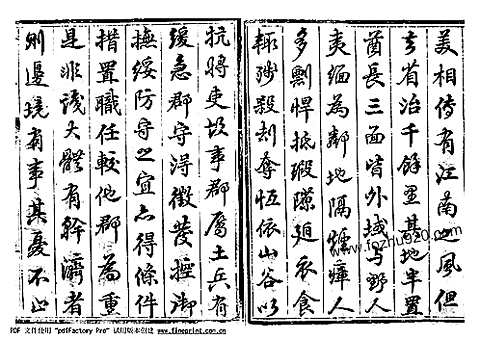 美相傳有江南之風但
去省治千餘里其地半置
酋長三面皆外域与野人
夷緬為鄰地隔煙瘴人
多剽悍抵瑕隙廼衣食
輙殘殺刦奪恆依山谷以
抗將吏故事郡屬土兵有
緩急郡守得徵發控御
撫綏防守之宜亦得條件
措置職任較他郡為重
是非識大體有幹濟者
則邊境有事某憂不止
www.fozhu920.com
PDF 文件使用 "pdfFactory Pro" 试用版本创建 www.fineprint.com.cn